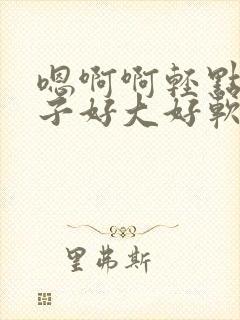 嗯啊啊輕點
子好大好軟
里弗斯